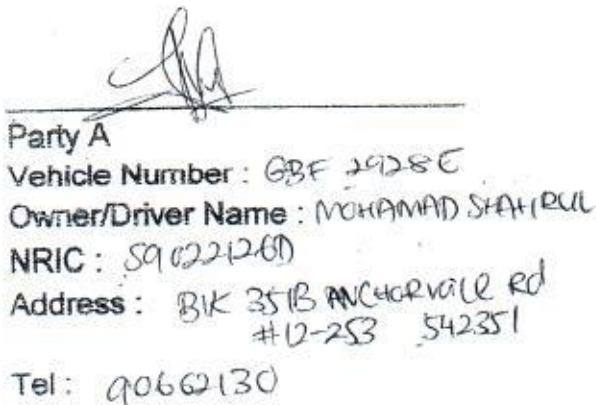 Party A
Vehicle Number : GBF 2928E
Owner/Driver Name : MOHAMAD SHAHIRUL
NRIC : S9022126D
Address : BlK 351B ANCHORVALE Rd
#12-253 542351
Tel : 90662130